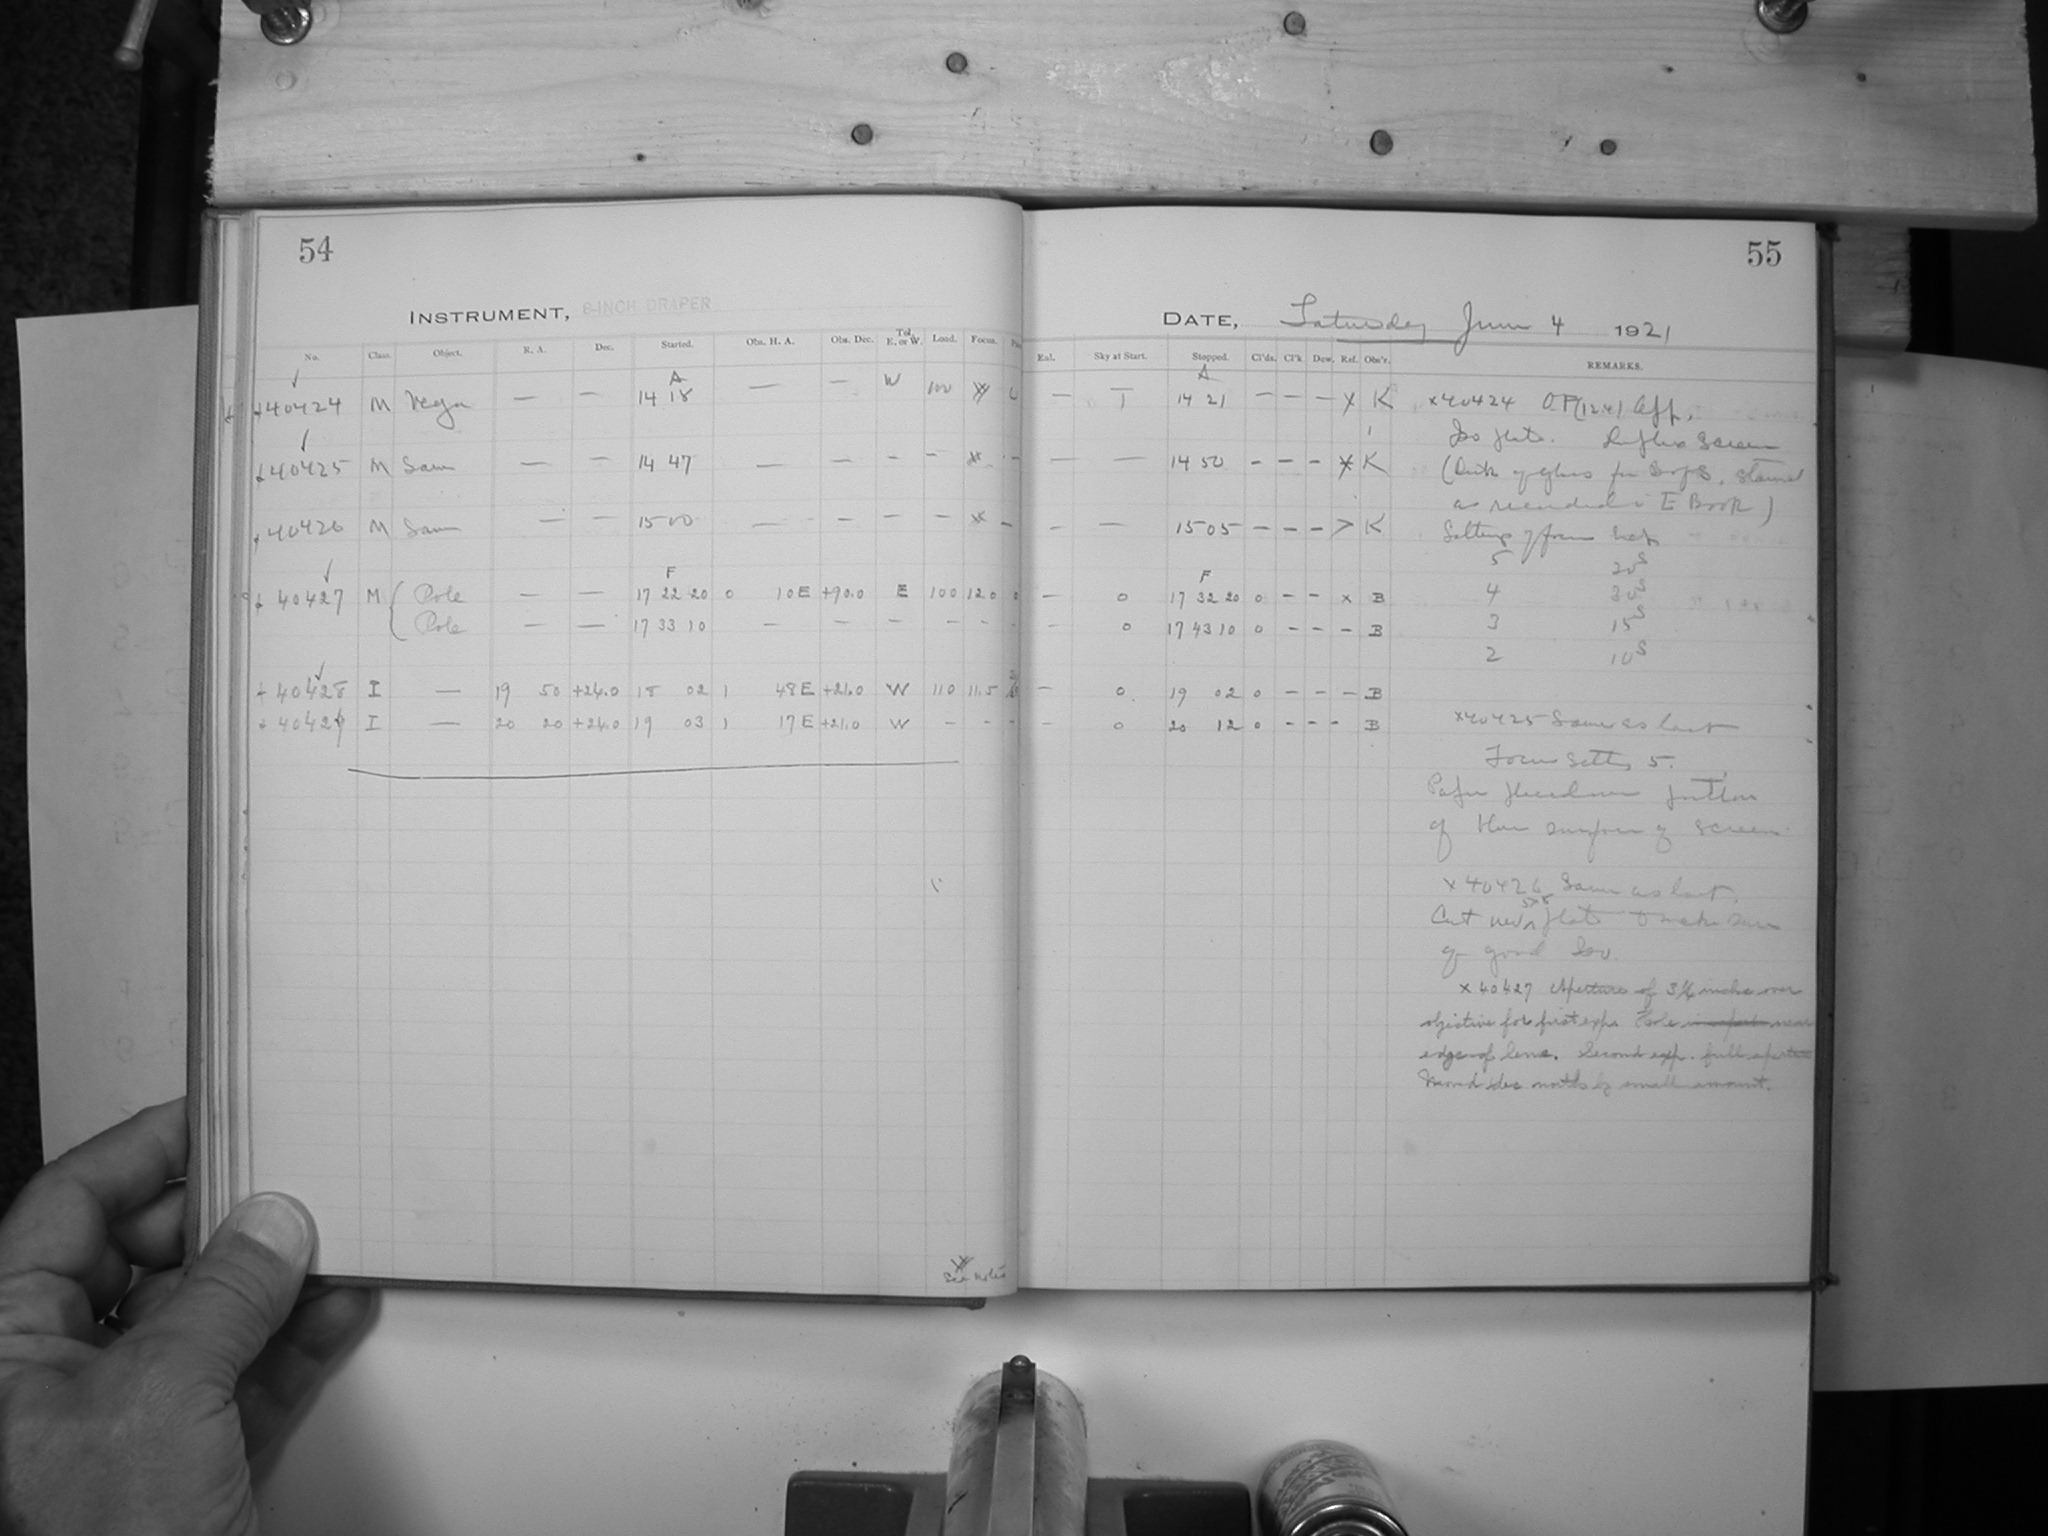 54
INSTRUMENT, 8-INCH DRAPER
No. Class. Object. R. A. Dec. Started. Obs. H. A. Obs. Dec. Tel. E. or W. Load. Focus.
40424 M Vega — — A 14 18 — — W 100
40425 M Same — — 14 47 — — — —
40426 M Same — — 15 00 — — — —
40427 M Pole — — F 17 22 20 0 10 E +90.0 E 100 12.0
Pole — — 17 33 10 — — — — —
40428 I — 19 50 +24.0 18 02 1 48 E +21.0 W 110 11.5
40429 I — 20 20 +24.0 19 03 1 17 E +21.0 W — —
See notes
55
DATE, Saturday June 4 1921
Sky at Start. Stopped. Cl'ds. Cl'k Dew. Ref. Obs'r. REMARKS.
— T A 14 21 — — — x K
— — 14 50 — — — x K
— — 15 05 — — — K
— 0 F 17 32 20 0 — — x B
— 0 17 43 10 0 — — — B
— 0 19 02 0 — — — B
— 0 20 12 0 — — — B
x40424
Iso plate. Screen
as recorded in E Book)
Setting of focus
5 20s
4 30s
3 15s
2 10s
x40425 Same as last
Focus Setting 5.
Paper
of screen
x40426 Same as last.
Cut new 5x8 plate to make sure
of good Iso.
x40427 Aperture of 3 1/4 inches over
objective for first exp. Pole near
edge of lens. Second exp. full aperture
Moved dec north by small amount.